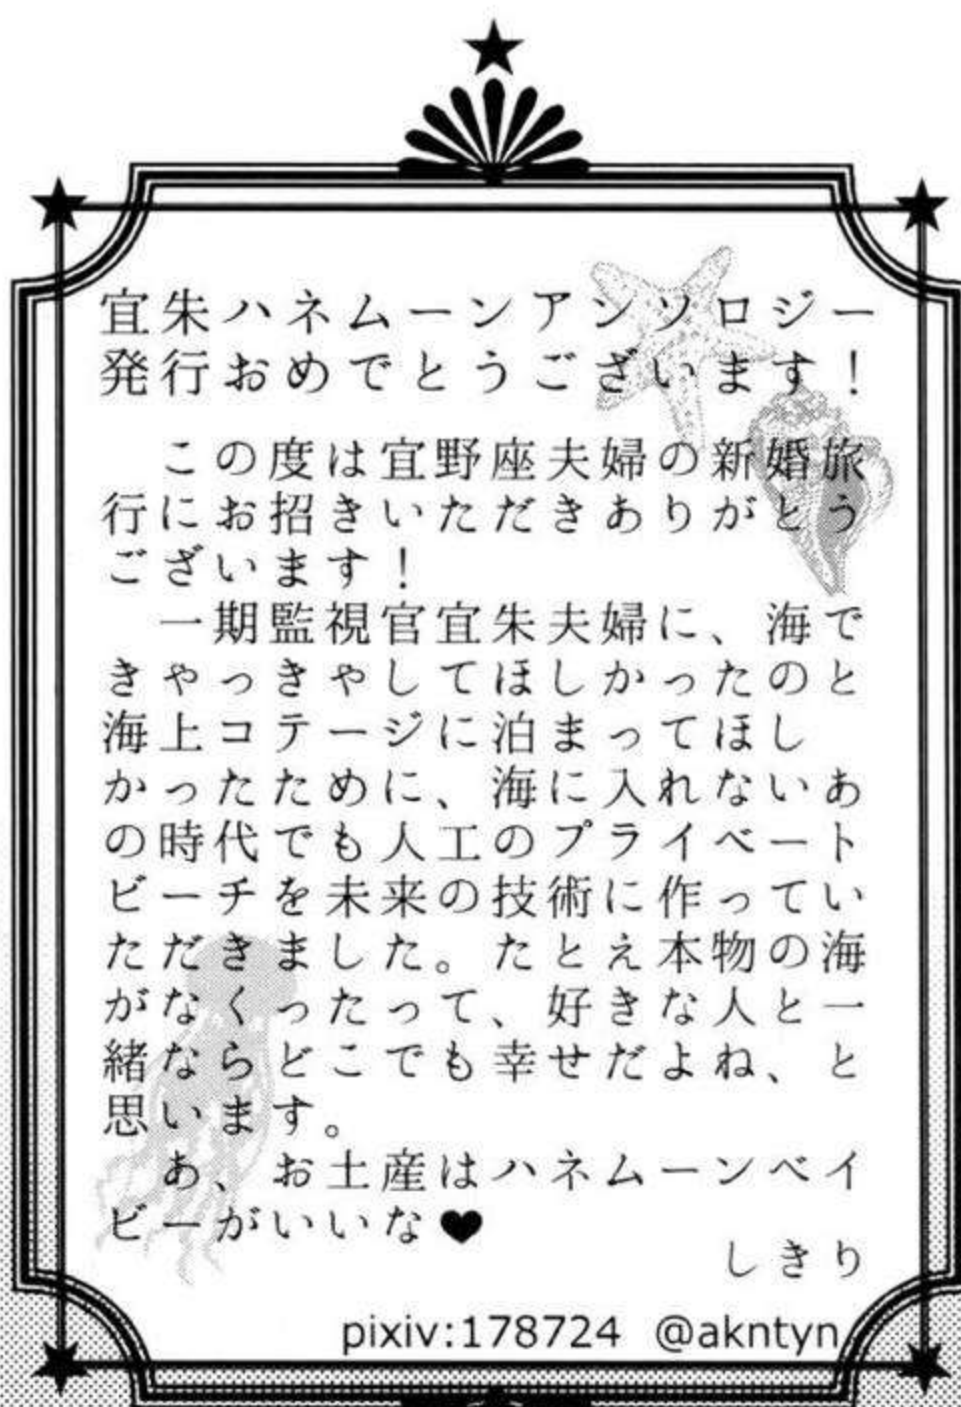 宜朱ハネムーンアンソロジー
発行おめでとうございます！
この度は宜野座夫婦の新婚旅
行にお招きいただきありがとう
ございます！
一期監視官宜朱夫婦に、海で
きゃっきゃしてほしかったのと
海上コテージに泊まってほし
かったために、海に入れないあ
の時代でも人工のプライベート
ビーチを未来の技術に作ってい
ただきました。たとえ本物の海
がなくったって、好きな人と一
緒ならどこでも幸せだよね、と
思います。
あ、お土産はハネムーンベイ
ビーがいいな♥
しきり
pixiv:178724 @akntyn